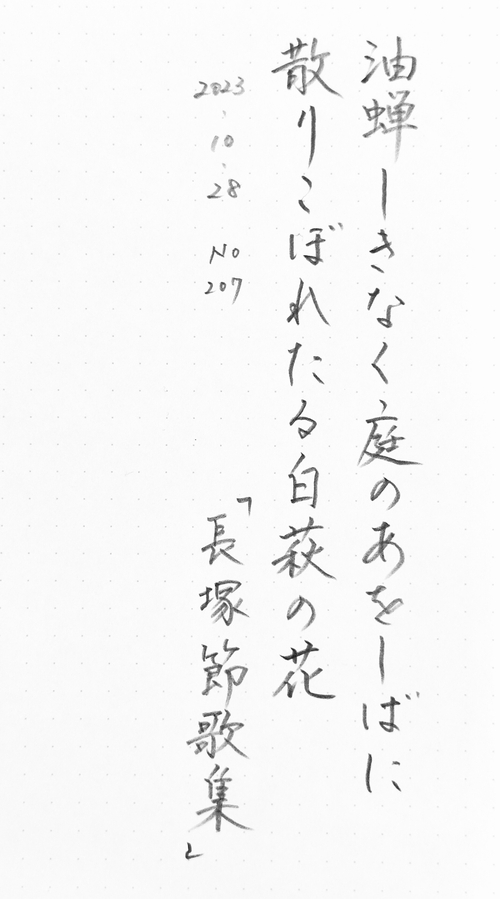 油蝉しきなく庭のあをしばに
散りこぼれたる白萩の花
2023.10.28 No 207
「長塚節歌集」